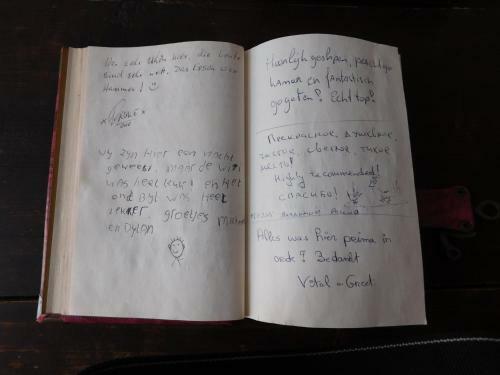 War sehr schön hier, die Leute
sind sehr nett. Das Essen war
Hammer! ☺
wij zijn hier een nacht
geweest, maar de wifi
was heel leuk! en Het
ontbijt was Heel
lekker groetjes
en Dylan
Heerlijk geslapen, prachtige
kamer en fantastisch
gegeten! Echt top!
Прекрасное, душевное,
чистое, светлое, тихое
место!
Highly recommended!
СПАСИБО!
Alles was hier prima in
orde! Bedankt
Vital en Greet